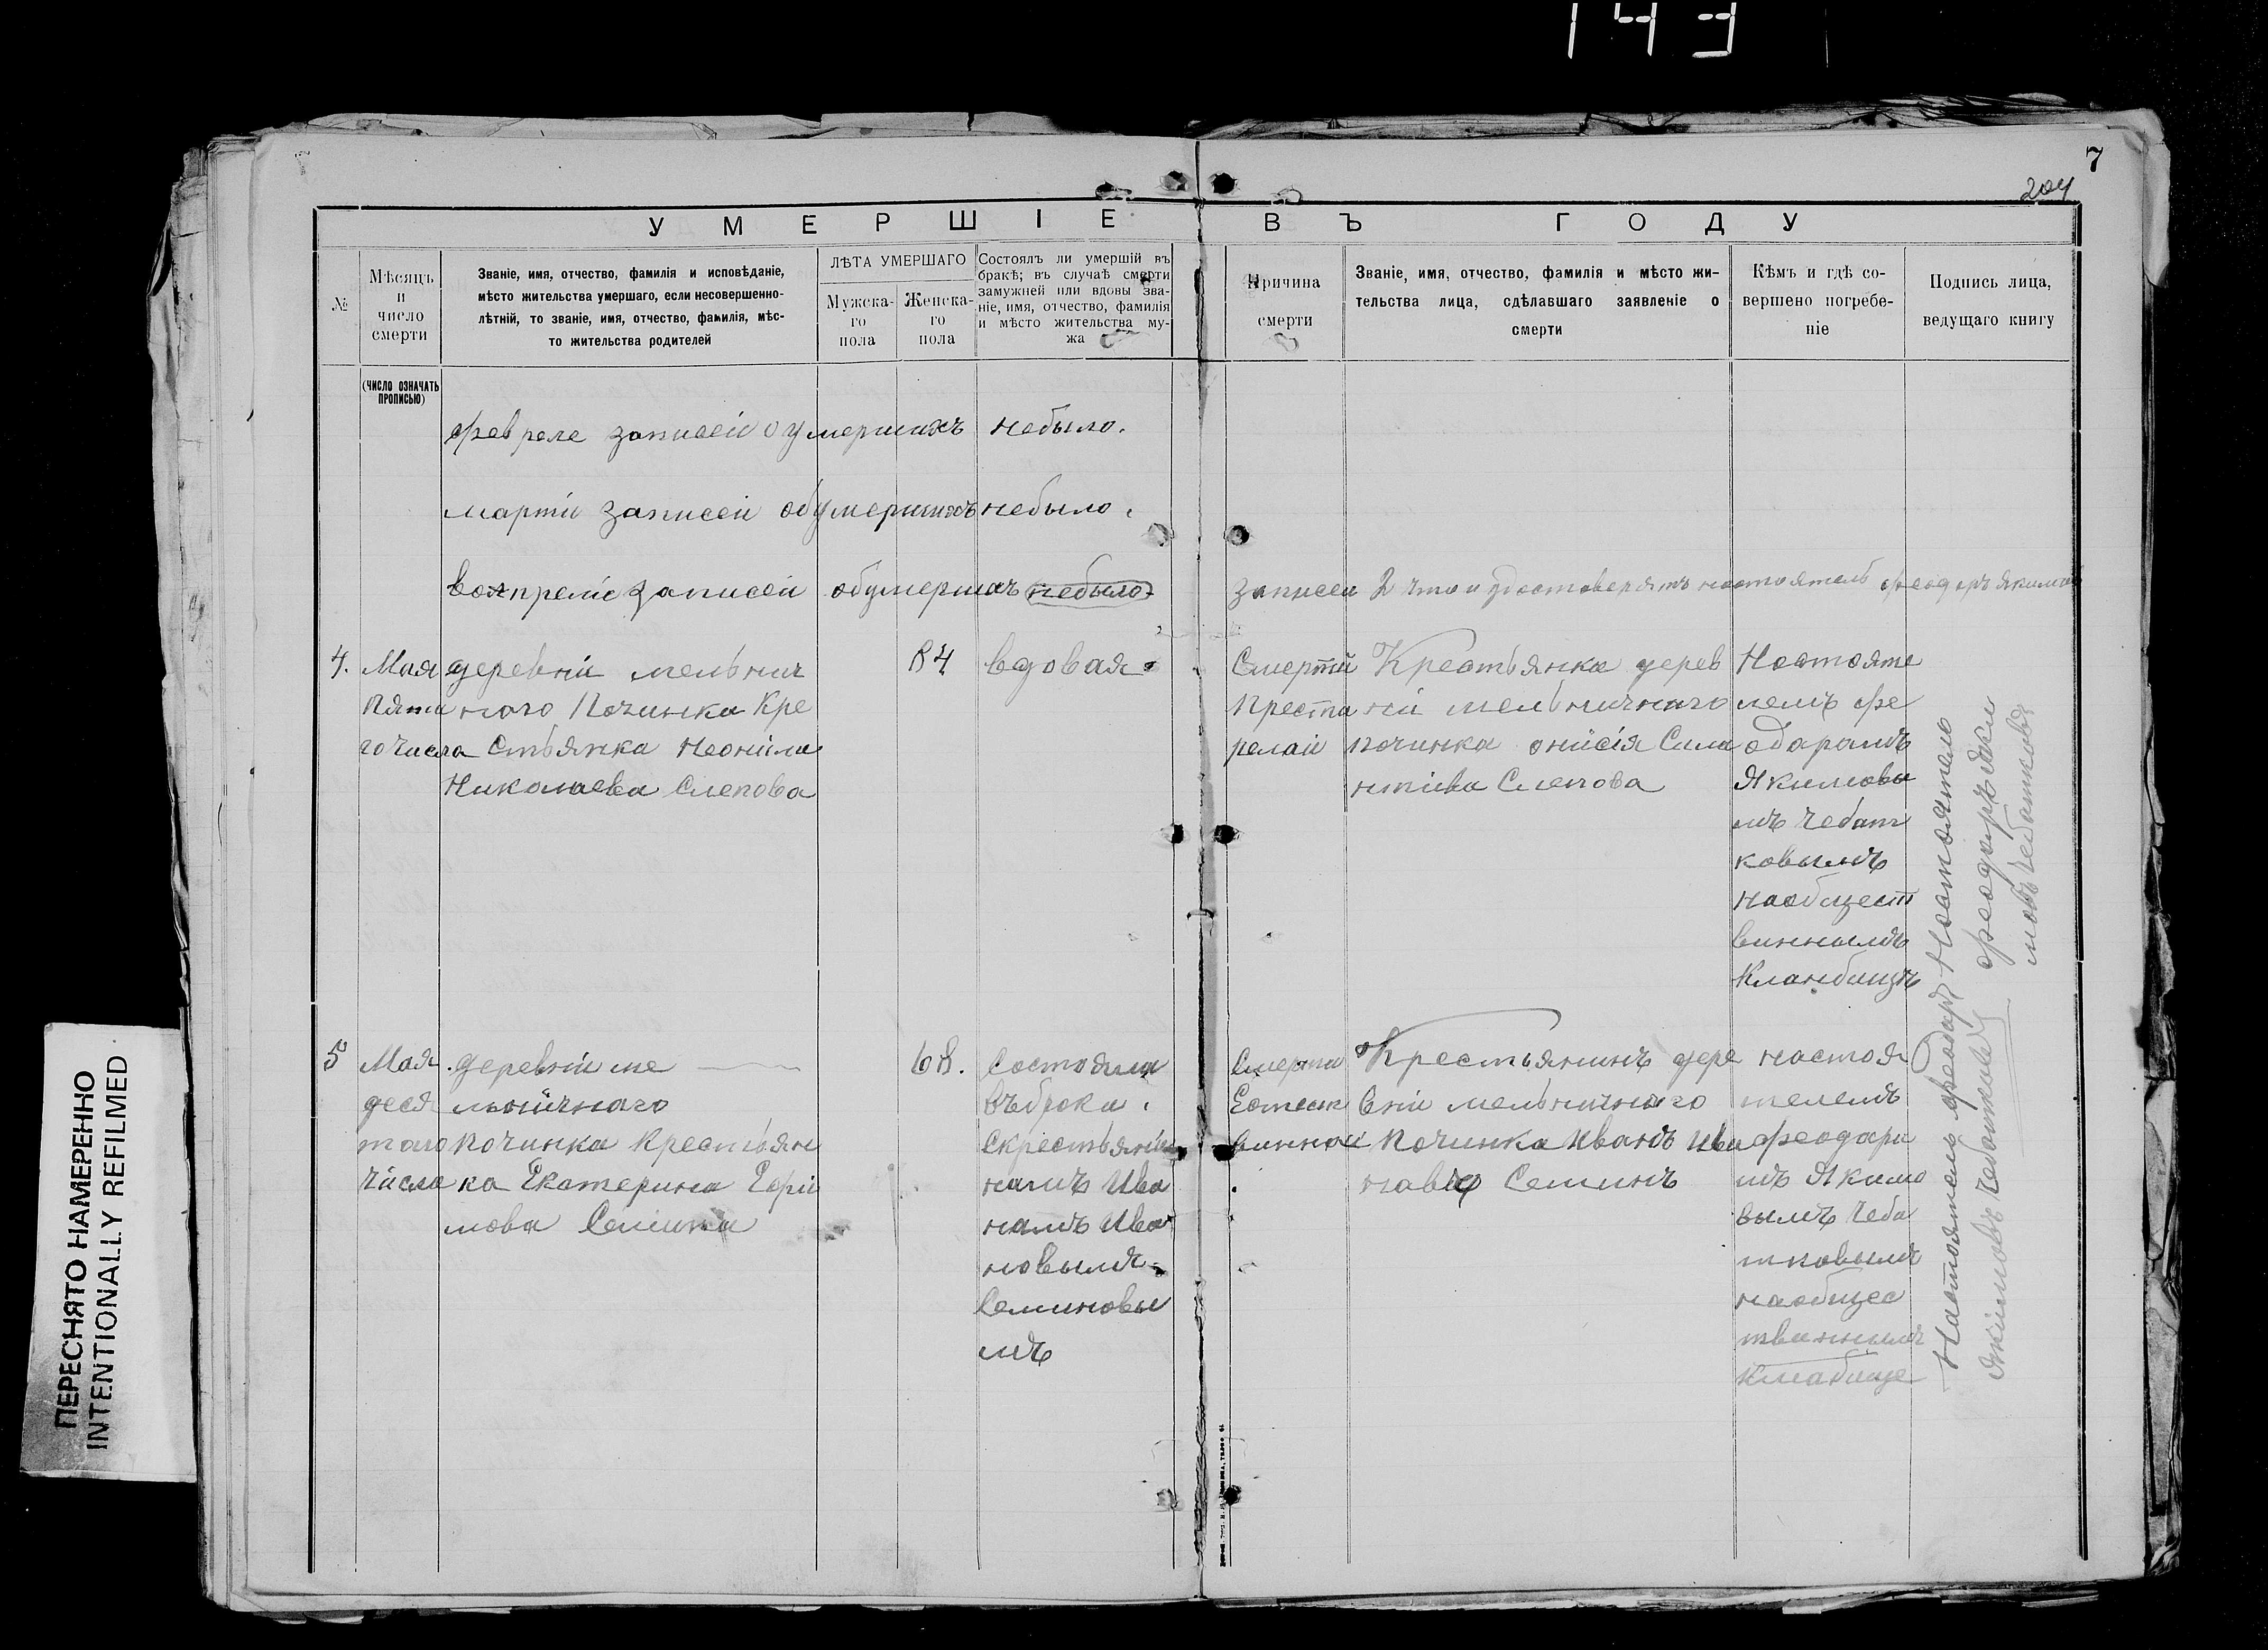 143
7
204
УМЕРШІЕ ВЪ ГОДУ
№
Мѣсяцъ
и
число
смерти
Званіе, имя, отчество, фамилія и исповѣданіе,
мѣсто жительства умершаго, если несовершенно-
лѣтній, то званіе, имя, отчество, фамилія, мѣс-
то жительства родителей
ЛѢТА УМЕРШАГО
Мужска-
го
пола
Женска-
го
пола
Состоялъ ли умершій въ
бракѣ; въ случаѣ смерти
замужней или вдовы зва-
ніе, имя, отчество, фамилія
и мѣсто жительства му-
жа
Причина
смерти
Званіе, имя, отчество, фамилія и мѣсто жи-
тельства лица, сдѣлавшаго заявленіе о
смерти
Кѣмъ и гдѣ со-
вершено погребе-
ніе
Подпись лица,
ведущаго книгу
(ЧИСЛО ОЗНАЧАТЬ
ПРОПИСЬЮ)
февреле записей о умершихъ небыло.
марти записей обумершихъ небыло.
вапреліе записей обумершхъ небыло
записеи 2 что и удостоверятъ настоятель феодоръ якимов
4.
Мая
пята
го числа
деревни мельнич
наго Починка Кре
стьянка Неонила
Николаева Слепова
84
вдовая
Смерти
Преста
релаи
Крестьянка дерев
ни мельничнаго
починка онисія Сила
нтиева Слепова
Настояте
лемъ фе
одарамъ
Якимовы
мъ Чебат
ковымъ
наобщест
виннымъ
Кланбищъ
5
Мая
деся
таго
числа
деревни ме
льничнаго
починка Крестьян
ка Екатерина Ефи
мова Семина
68.
Состояла
въбраки
Скрестьяни
намъ Ива
намъ Ива
новымъ
Семиновы
мъ
Смерти
Естест
виннои
Крестьянинъ дере
вни мельничнаго
починка Иванъ Ива
навъ Семинъ
настоя
телемъ
феодари
мъ Якимо
вымъ Чеба
тковымъ
наобщес
твиннымъ
Клабище
Настоятель феодаръ
якимовъ Чебатковъ
Настоятель
феодоръ Яки
мовъ Чебатковъ
ПЕРЕСНЯТО НАМЕРЕННО
INTENTIONALLY REFILMED